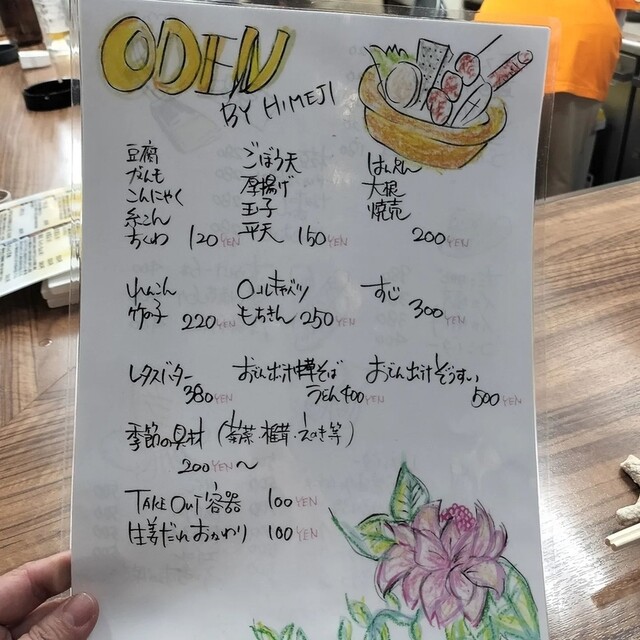 ODEN
BY HIMEJI
豆腐
がんも
こんにゃく
糸こん
ちくわ 120 YEN
ごぼう天
厚揚げ
玉子
平天 150 YEN
はんぺん
大根
焼売
200 YEN
れんこん
竹の子 220 YEN
ロールキャベツ
もちきん 250 YEN
すじ
300 YEN
レタスバター
380 YEN
おでん出汁中華そば
うどん 400 YEN
おでん出汁ぞうすい
500 YEN
季節の具材 (春菊・椎茸・えのき等)
200 YEN〜
TAKE OUT 容器 100 YEN
生姜だれおかわり 100 YEN